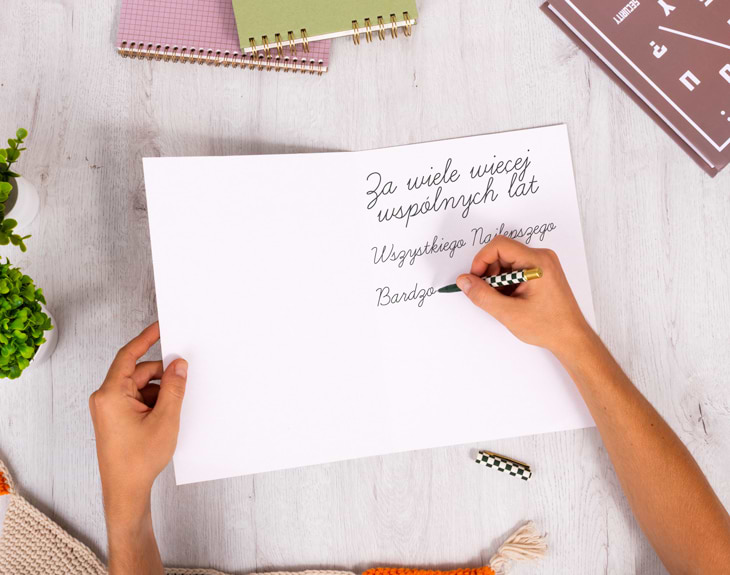 Za wiele więcej
wspólnych lat
Wszystkiego Najlepszego
Bardzo
SECURITY